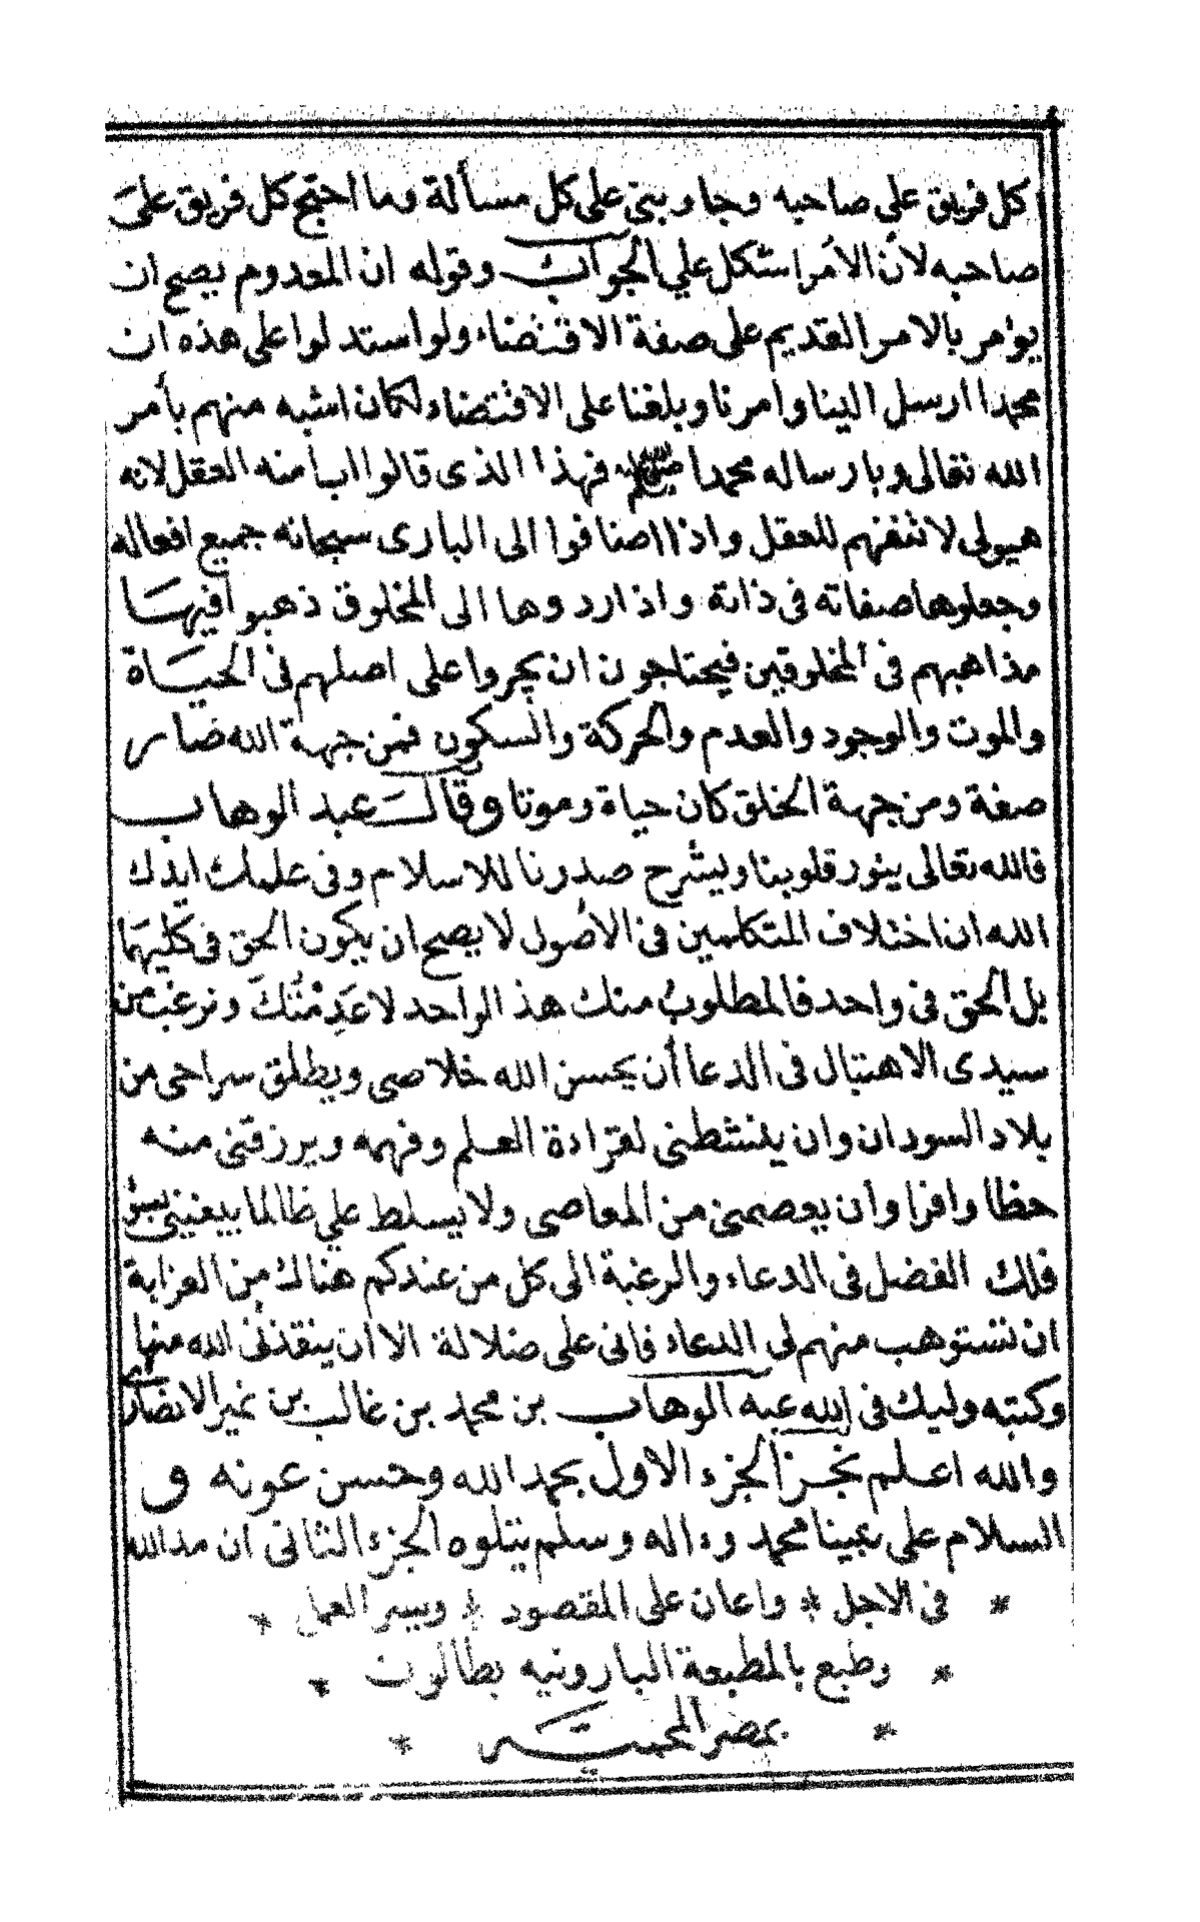 كل فريق علي صاحبه وجاوبني على كل مسألة وما احتج كل فريق علىَ
صاحبه لأن الأمر استكل علي الجواب وقوله ان المعدوم يصح ان
يؤمر بالامر القديم على صفة الاقتضاء ولو استدلوا على هذه ان
محمدا ارسل الينا وامرنا وبلغنا على الاقتضاء لكان اشبه منهم بأمر
الله تعالى وبارساله محمدا ﷺ فهذا الذى قالوا ابا منه العقل لانه
هيولى لا تثقنهم للعقل واذا اصنافوا الى البارى سبحانه جميع افعاله
وجعلوها صفاته في ذاته واذا ردوها الى المخلوق ذهبوا فيها
مذاهبهم في المخلوقين فيحتاجون ان يجروا على اصلهم في الحياة
والموت والوجود والعدم والحركة والسكون فمن جهة الله صار
صفة ومن جهة الخلق كان حياة وموتا وقالَ عبد الوهاب
فالله تعالى ينور قلوبنا ويشرح صدرنا للاسلام وفي علمك ايدك
الله ان اختلاف المتكلمين في الأصول لا يصح ان يكون الحق في كليهما
بل الحق في واحد فالمطلوب منك هذ الواحد لا عَدِمْتُكَ ونرغب من
سيدى الاهتبال في الدعا أن يحسن الله خلاصي ويطلق سراحى من
بلاد السودان وان ينشطنى لقراءة العلم وفهمه ويرزقنى منه
حظا وافرا وان يعصمنى من المعاصى ولا يسلط علي ظالما يبغينى بسوء
فلك الفضل في الدعاء والرغبة الى كل من عندكم هناك من العزابة
ان نستوهب منهم لى الدعاء فانى على ضلالة الا ان ينقذنى الله منها
وكتبه وليك في الله عبد الوهاب بن محمد بن غالب بن نمير الانصارى
والله اعلم نجز الجزء الاول بحمد الله وحسن عونه و
السلام على نبينا محمد وءاله وسلم يتلوه الجزء الثانى ان مد الله
* في الاجل * واعان على المقصود * ويسر العمل *
* وطبع بالمطبعة البارونيه بطالون *
* بمصر المحميّه *